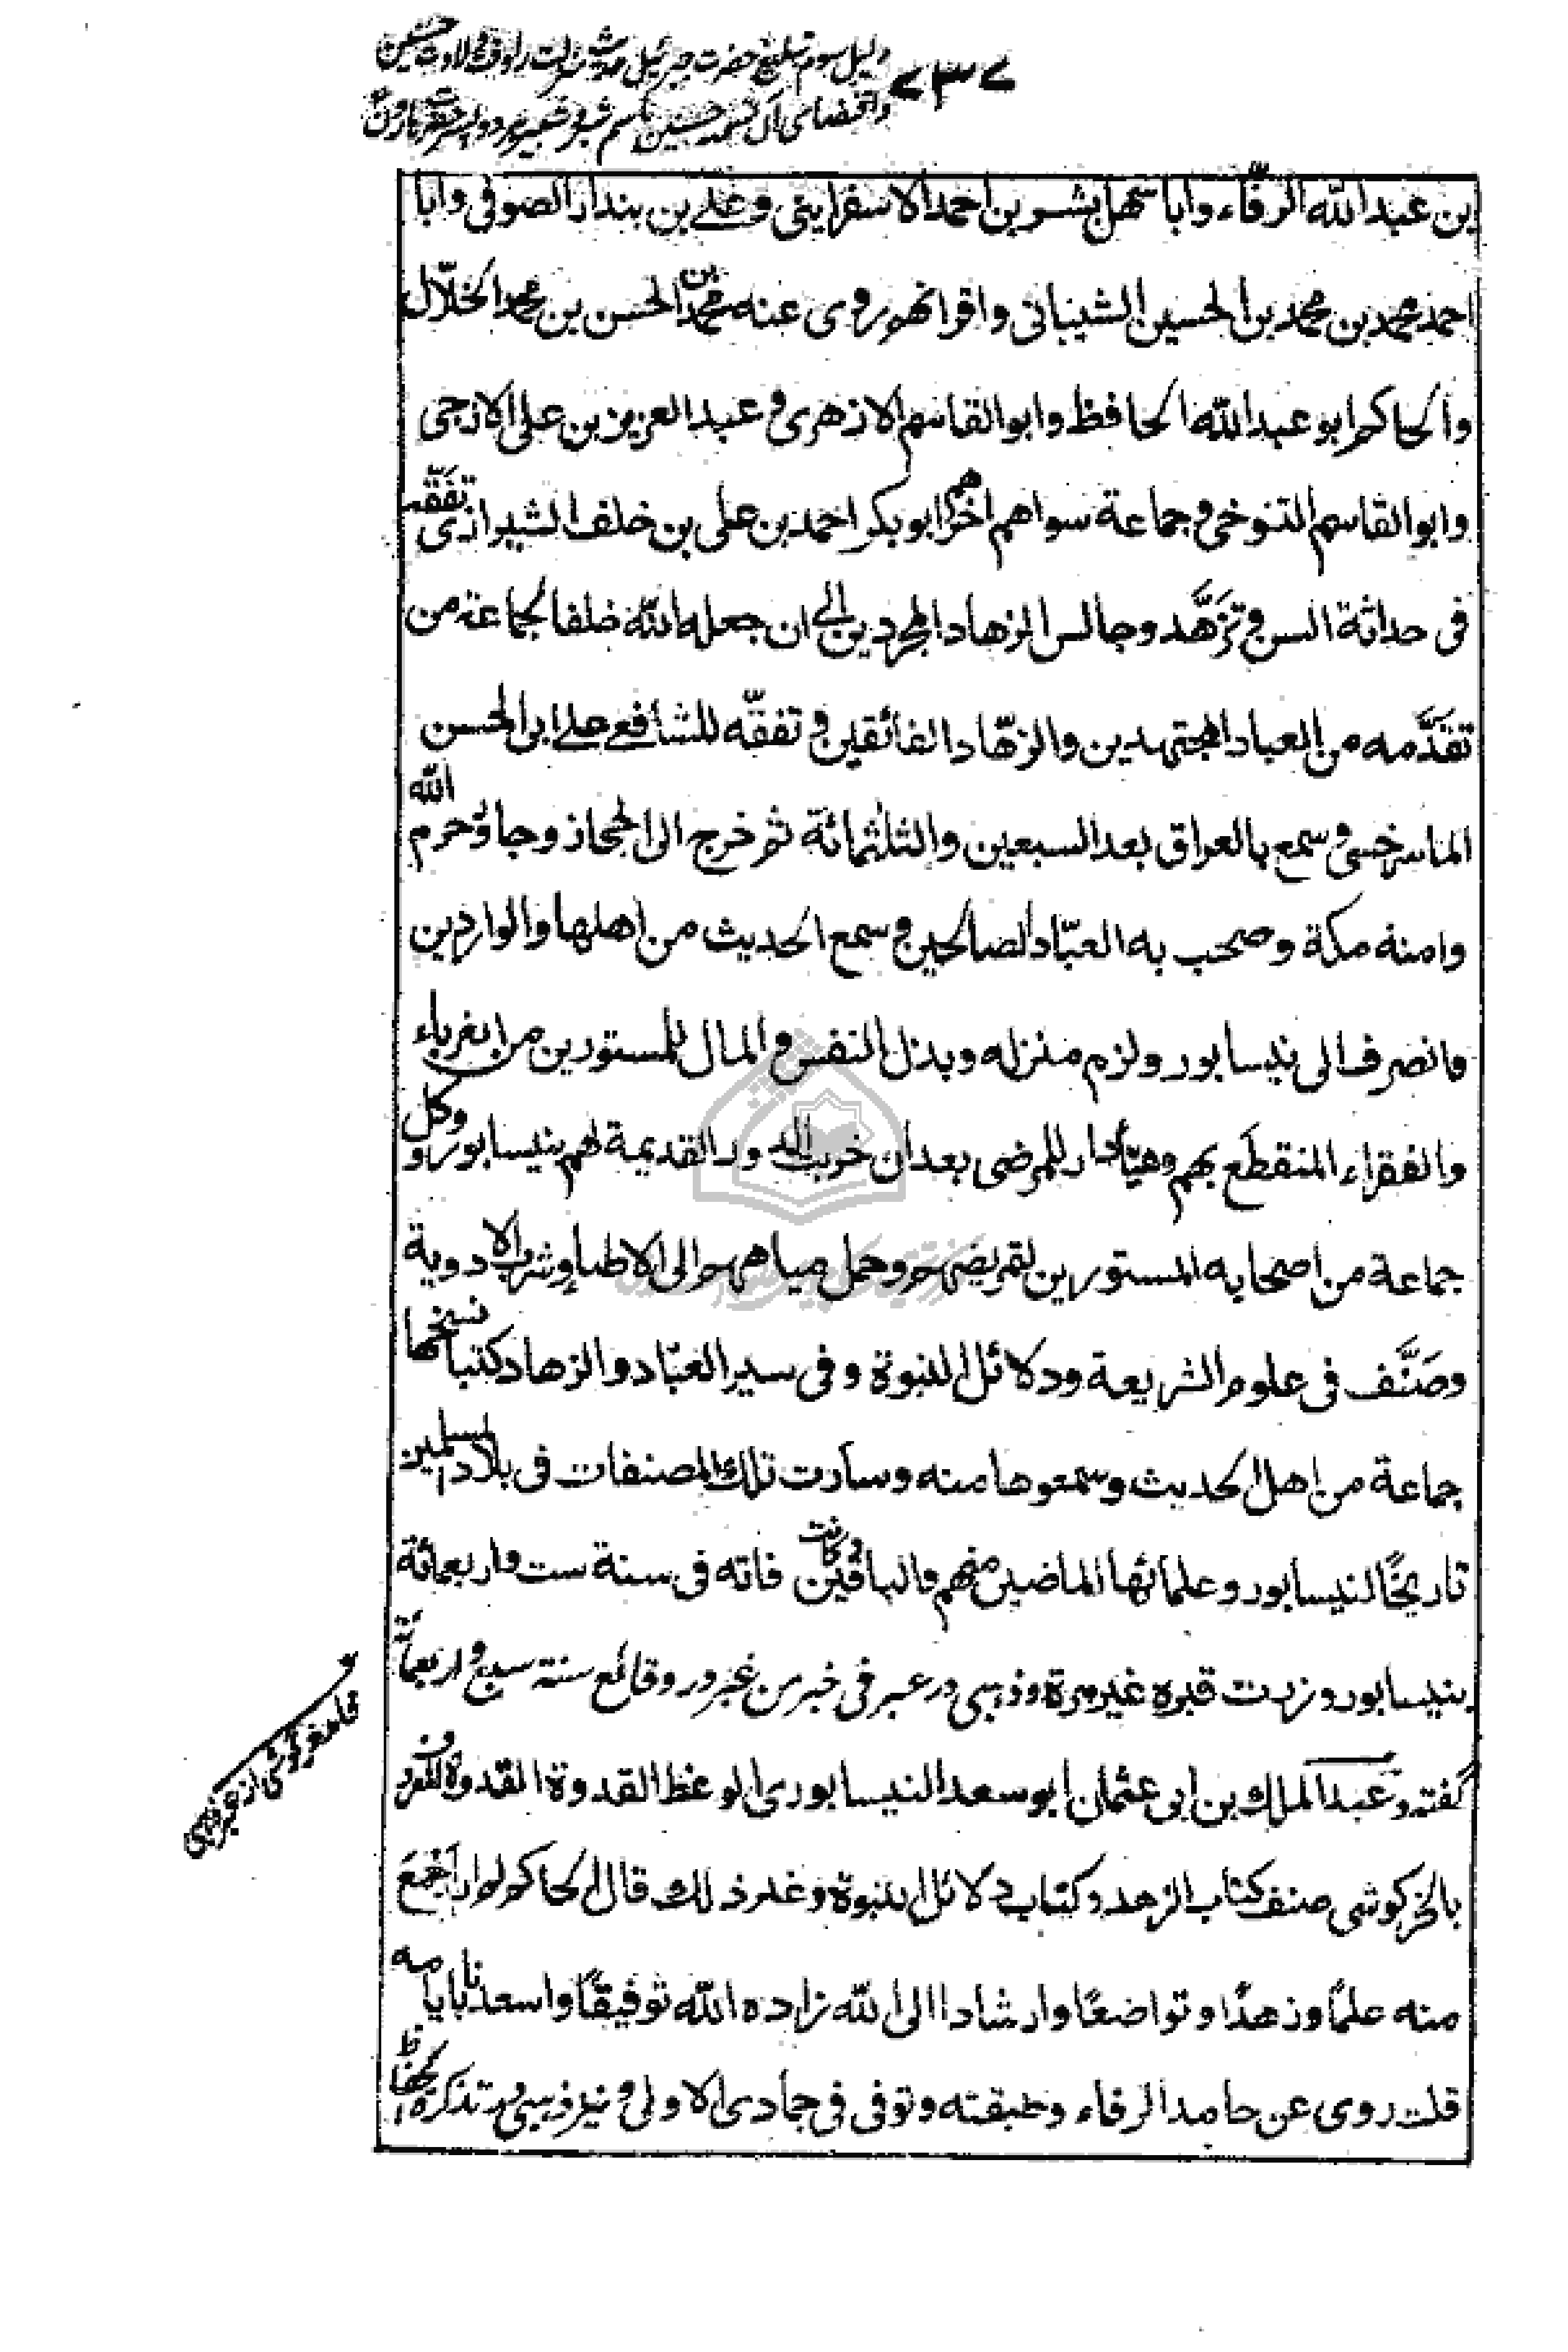 دلیل سوم تبلیغ حضرت جبرئیل حدیث منزلت را وقت ولادت حسنین
۷۳۷
واقتضای آن تسمیه حسنین باسم شبر و شبیر پسر حضرت هارون
بن عبد الله الرفّاء وابا سهل بشر بن احمد الاسفراینی و علے بن بندار الصوفی وابا
احمد محمد بن محمد بن الحسین الشیبانی واقرانهم روی عنه محمد بن الحسن بن محمد الخلّال
والحاکم ابو عبد الله الحافظ وابو القاسم الازهری و عبد العزیز بن علی الازجی
وابو القاسم التنوخی و جماعة سواهم اخرهم ابو بکر احمد بن علی بن خلف الشیرازی تفقّه
فی حداثة السن و تزَهَّد وجالس الزهاد المجردین الے ان جعله الله خلفا لجماعة من
تقدَّمه من العباد المجتهدین والزهّاد الفائقین و تفقّه للشافعے علے ابی الحسن
الماسرخسی و سمع بالعراق بعد السبعین والثلثمائة ثم خرج الی الحجاز وجاور حرم الله
وامنه مکة وصحب به العبّاد الصالحین و سمع الحدیث من اهلها والواردین
وانصرف الی نیسابور ولزم منزله وبذل النفس و المال للمستورین من الغرباء
والفقراء المنقطع بهم وهیّأ دار للمرضی بعد ان خربت الدور القدیمة لهم بنیسابور ووکل
جماعة من اصحابه المستورین لتمریضهم وحمل میاههم الی الاطباء وشری الادویة
وصَنَّف فی علوم الشریعة ودلائل النبوة وفی سیر العبّاد والزهاد کتبا نسخها
جماعة من اهل الحدیث وسمعوها منه وسارت تلک المصنفات فی بلاد المسلمین
تاریخًا لنیسابور وعلمائها الماضین منهم والباقین وکانت فاته فی سنة ست واربعمائة
بنیسابور وزرت قبره غیر مرة وذهبی در عبر فی خبر من غبر در وقائع سنة سبع واربعمائة
گفته و عبد الملک بن ابی عثمان ابو سعد النیسابوری الوعظ القدوة القدوة المعروف
بالخرکوشی صنف کتاب الزهد و کتاب دلائل النبوة وغیر ذلک قال الحاکم لم ار اجمع
منه علمًا وزهدًا وتواضعًا وارشادا الی الله زاده الله توفیقًا واسعدنا بایامه
قلت روی عن حامد الرفاء وطبقته وتوفی فی جمادی الاولی و نیز ذهبی در تذکرة الحفاظ